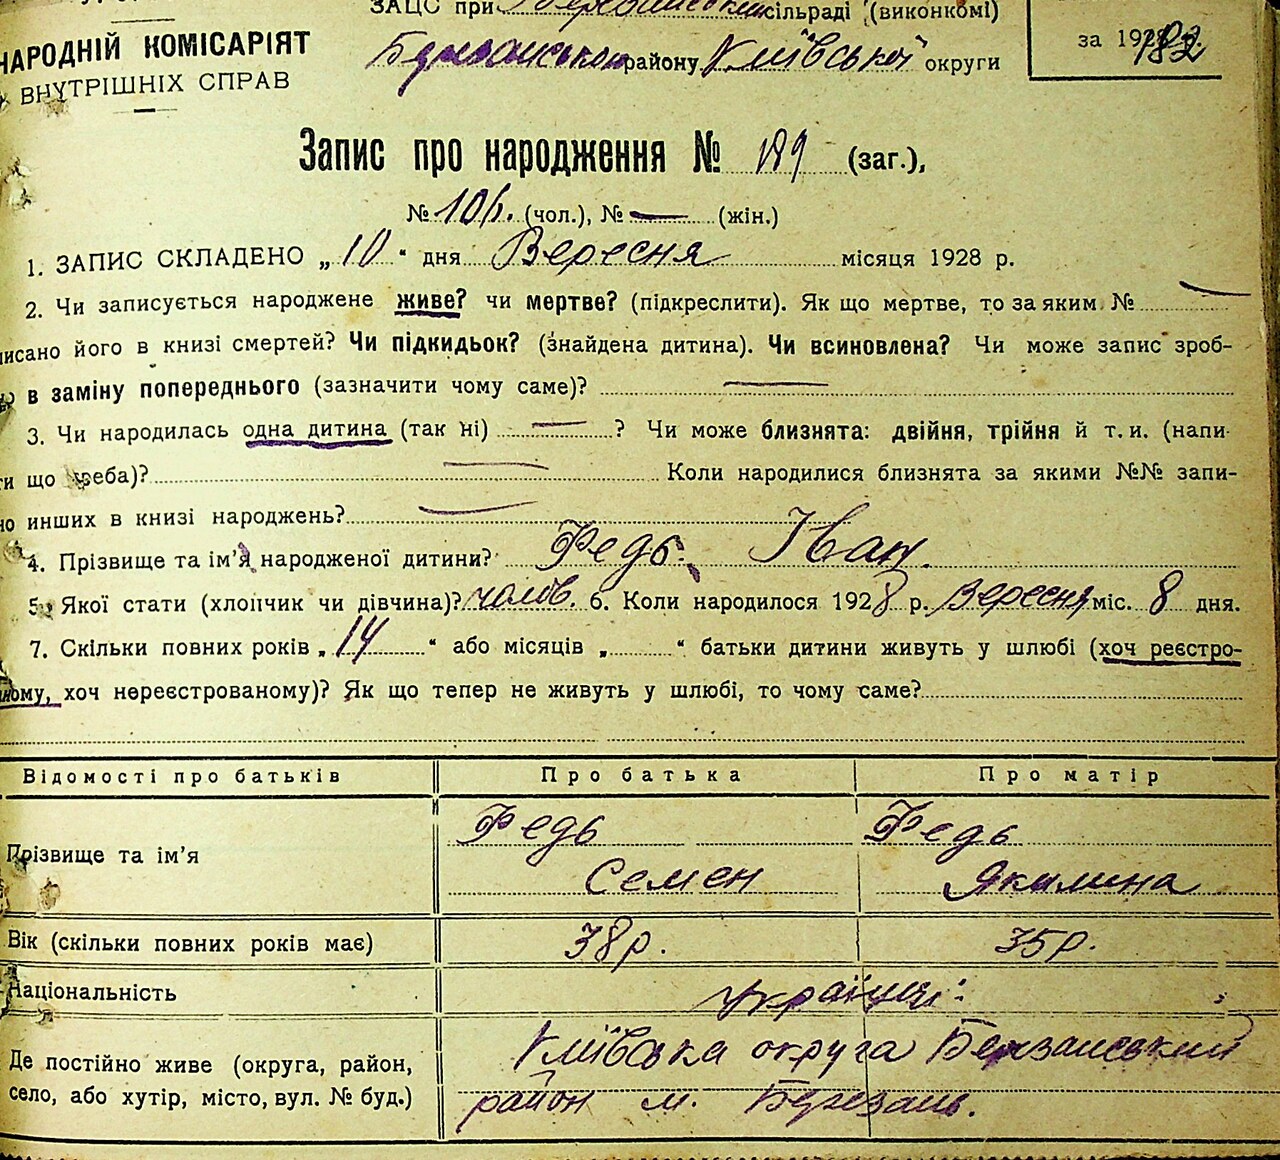 ЗАЦС при Березанський сільраді (виконкомі)
НАРОДНІЙ КОМІСАРІЯТ
ВНУТРІШНІХ СПРАВ
Березанського району Київської округи
за 192 182
Запис про народження № 189 (заг.),
№ 106. (чол.), № — (жін.)
1. ЗАПИС СКЛАДЕНО „ 10 “ дня Вересня місяця 1928 р.
2. Чи записується народжене живе? чи мертве? (підкреслити). Як що мертве, то за яким № —
писано його в книзі смертей? Чи підкидьок? (знайдена дитина). Чи всиновлена? Чи може запис зроб-
в заміну попереднього (зазначити чому саме)? —
3. Чи народилась одна дитина (так ні) — ? Чи може близнята: двійня, трійня й т. и. (напи-
ти що треба)? — Коли народилися близнята за якими №№ запи-
но инших в книзі народжень? —
4. Прізвище та ім’я народженої дитини? Федь Іван.
5. Якої стати (хлопчик чи дівчина)? чолов. 6. Коли народилося 1928 р. Вересня міс. 8 дня.
7. Скільки повних років „ 14 “ або місяців „ “ батьки дитини живуть у шлюбі (хоч реєстро-
ному, хоч нереєстрованому)? Як що тепер не живуть у шлюбі, то чому саме?
Відомості про батьків Про батька Про матір
Прізвище та ім’я Федь Семен Федь Якилина
Вік (скільки повних років має) 38 р. 35 р.
Національність українці
Де постійно живе (округа, район, Київська округа Березанський
село, або хутір, місто, вул. № буд.) район м. Березань.